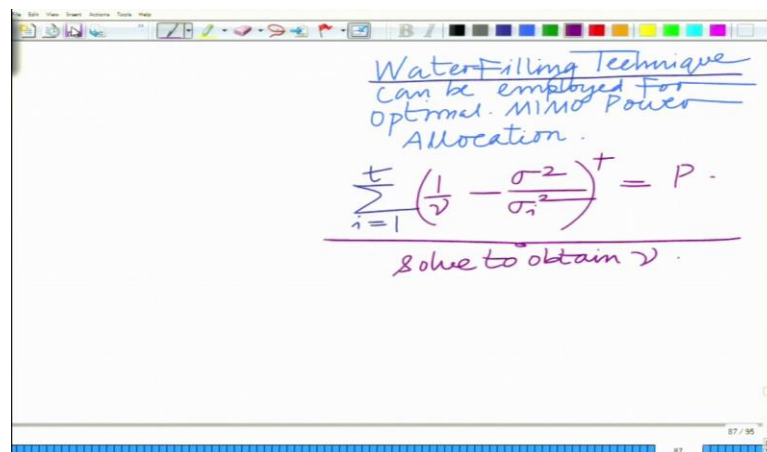 File Edit View Insert Actions Tools Help
B I
WaterFilling Technique
can be employed For
optimal MIMO Power
Allocation.
t∑i=1 (1/ν − σ²/σi²)⁺ = P.
solve to obtain ν.
87 / 95
87